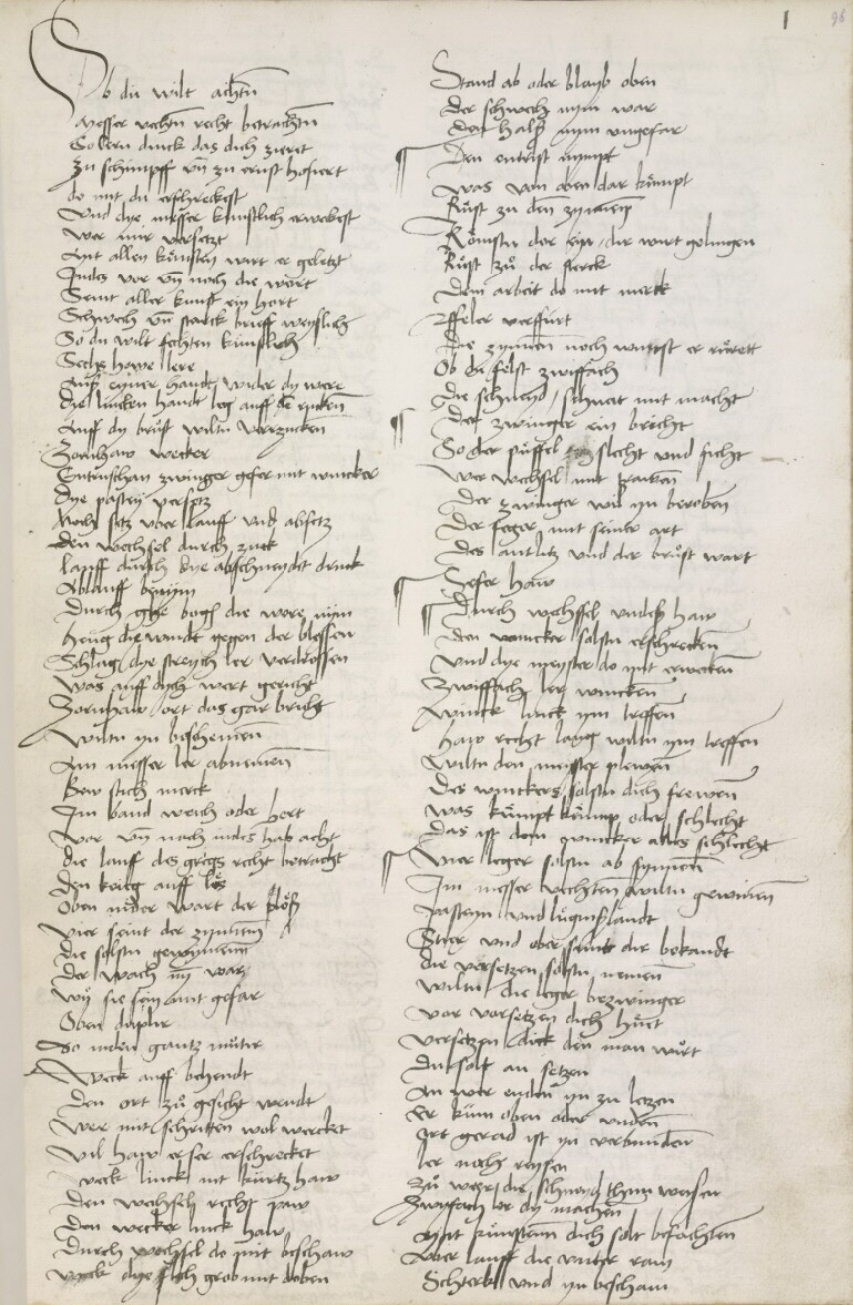 1
96
Ob du wilt achtñ
Messer vechtñ recht betrachtñ
So lern dinck das dich zieret
Zu schimpff vñ zu ernst hofiert
do mit du erschreckest
Vnd dye meister kunstlich erweckest
Wer mir versetzt
Mit allen kunsten wirt er geletzt
Indes vor vñ noch die wort
Seint aller kunst ein hort
Schwech vñ starck brieff weyslich
So du wilt fechten kunstlich
Sechs howe lere
Auß eyner handt wider dy were
Dye lincken handt leg auff dē rucken
Auff dy brust wiltu verzucken
Zornhaw wecker
Entrüsthaw zwinger gefer mit wincker
Dye pastey versetz
Noch setz vber lauff vnd absetz
den wechsel durch zuck
lauff durch dye abschneydt druck
Ablauff benym
Durch gee bogē die were nym
heng die windt gegen der blossen
Schlag dye streych ler verdrossen
Was auff dych wert gericht
Zornhaw ort das gar bricht
Wiltu yn beschemen
Am messer ler abnemen
Bew stich merck
Im band weich oder hert
Vor vñ nach indes hab acht
die lauff des gregs recht betracht
den krieg auff los
Oben nider wart der plöß
Vier seint der zynnen
die solstu gewynnen
Der wach nym war
Wy sie sein mit gefar
Oben duplir
Do niden gantz mutir
Weck auff behendt
Den ort zu gesicht wendt
Wer mit schritten wol wercket
Vil haw er ser erschrecket
veck linck mit kurtz haw
Den wechsel recht paw
Den wecker linck haw
Durch wechsel do mit beschaw
veck dye flech grob mit doben
Stand ab oder blayb oben
Der schwech nym war
den halß nym vngefar
Den entrist nympt
Was von oben dar kumpt
Rüst zu den zynnen
Komstu der eyn dir wirt gelungen
Rüst zu der sterck
Dein arbeit do mit merck
Ffeler verfurt
die zynnen noch wunst er ruret
Ob du felst zwiffach
Die schneyd schneit mit macht
Der zwinger ein bricht
So der puffel slecht vnd sicht
Wer wechsel mit trawen
Der zwinger wil yn beroben
Der feger mit seiner art
Des antlitz vnd der brust wart
Gefer haw
Durch wechssel vndeß haw
Den wincker solstu erschrecken
Vnd dye meyster do mit erwecken
Zwiffach ler wincken
Winck linck ym treffen
haw recht lang wiltu ym treffen
Wiltu den meyster plewen
Des winckers solstu dich frewen
Was kumpt krump oder schlecht
Das ist dem wincker alles schlecht
Vier leger solstu ab synnen
Im messer vechten wiltu gewinen
Pasteyn vnd luginßlandt
Stier vnd ober seint dir bekandt
die versetzen solstu nemen
Wiltu die leger bezwinger
vor versetzen dich huet
Versetzen dick den man muet
Du solt an setzen
An vier enden yn zu letzen
Er kum oben oder vnden
Ort gerad ist yn verbunden
ler noch reysen
Zu wege die schneyd thun weysen
Zwyfach ler dy machen
Mit kunsten dich solt besachten
Vber lauff die vnter ram
Schterk vnd yn bescham